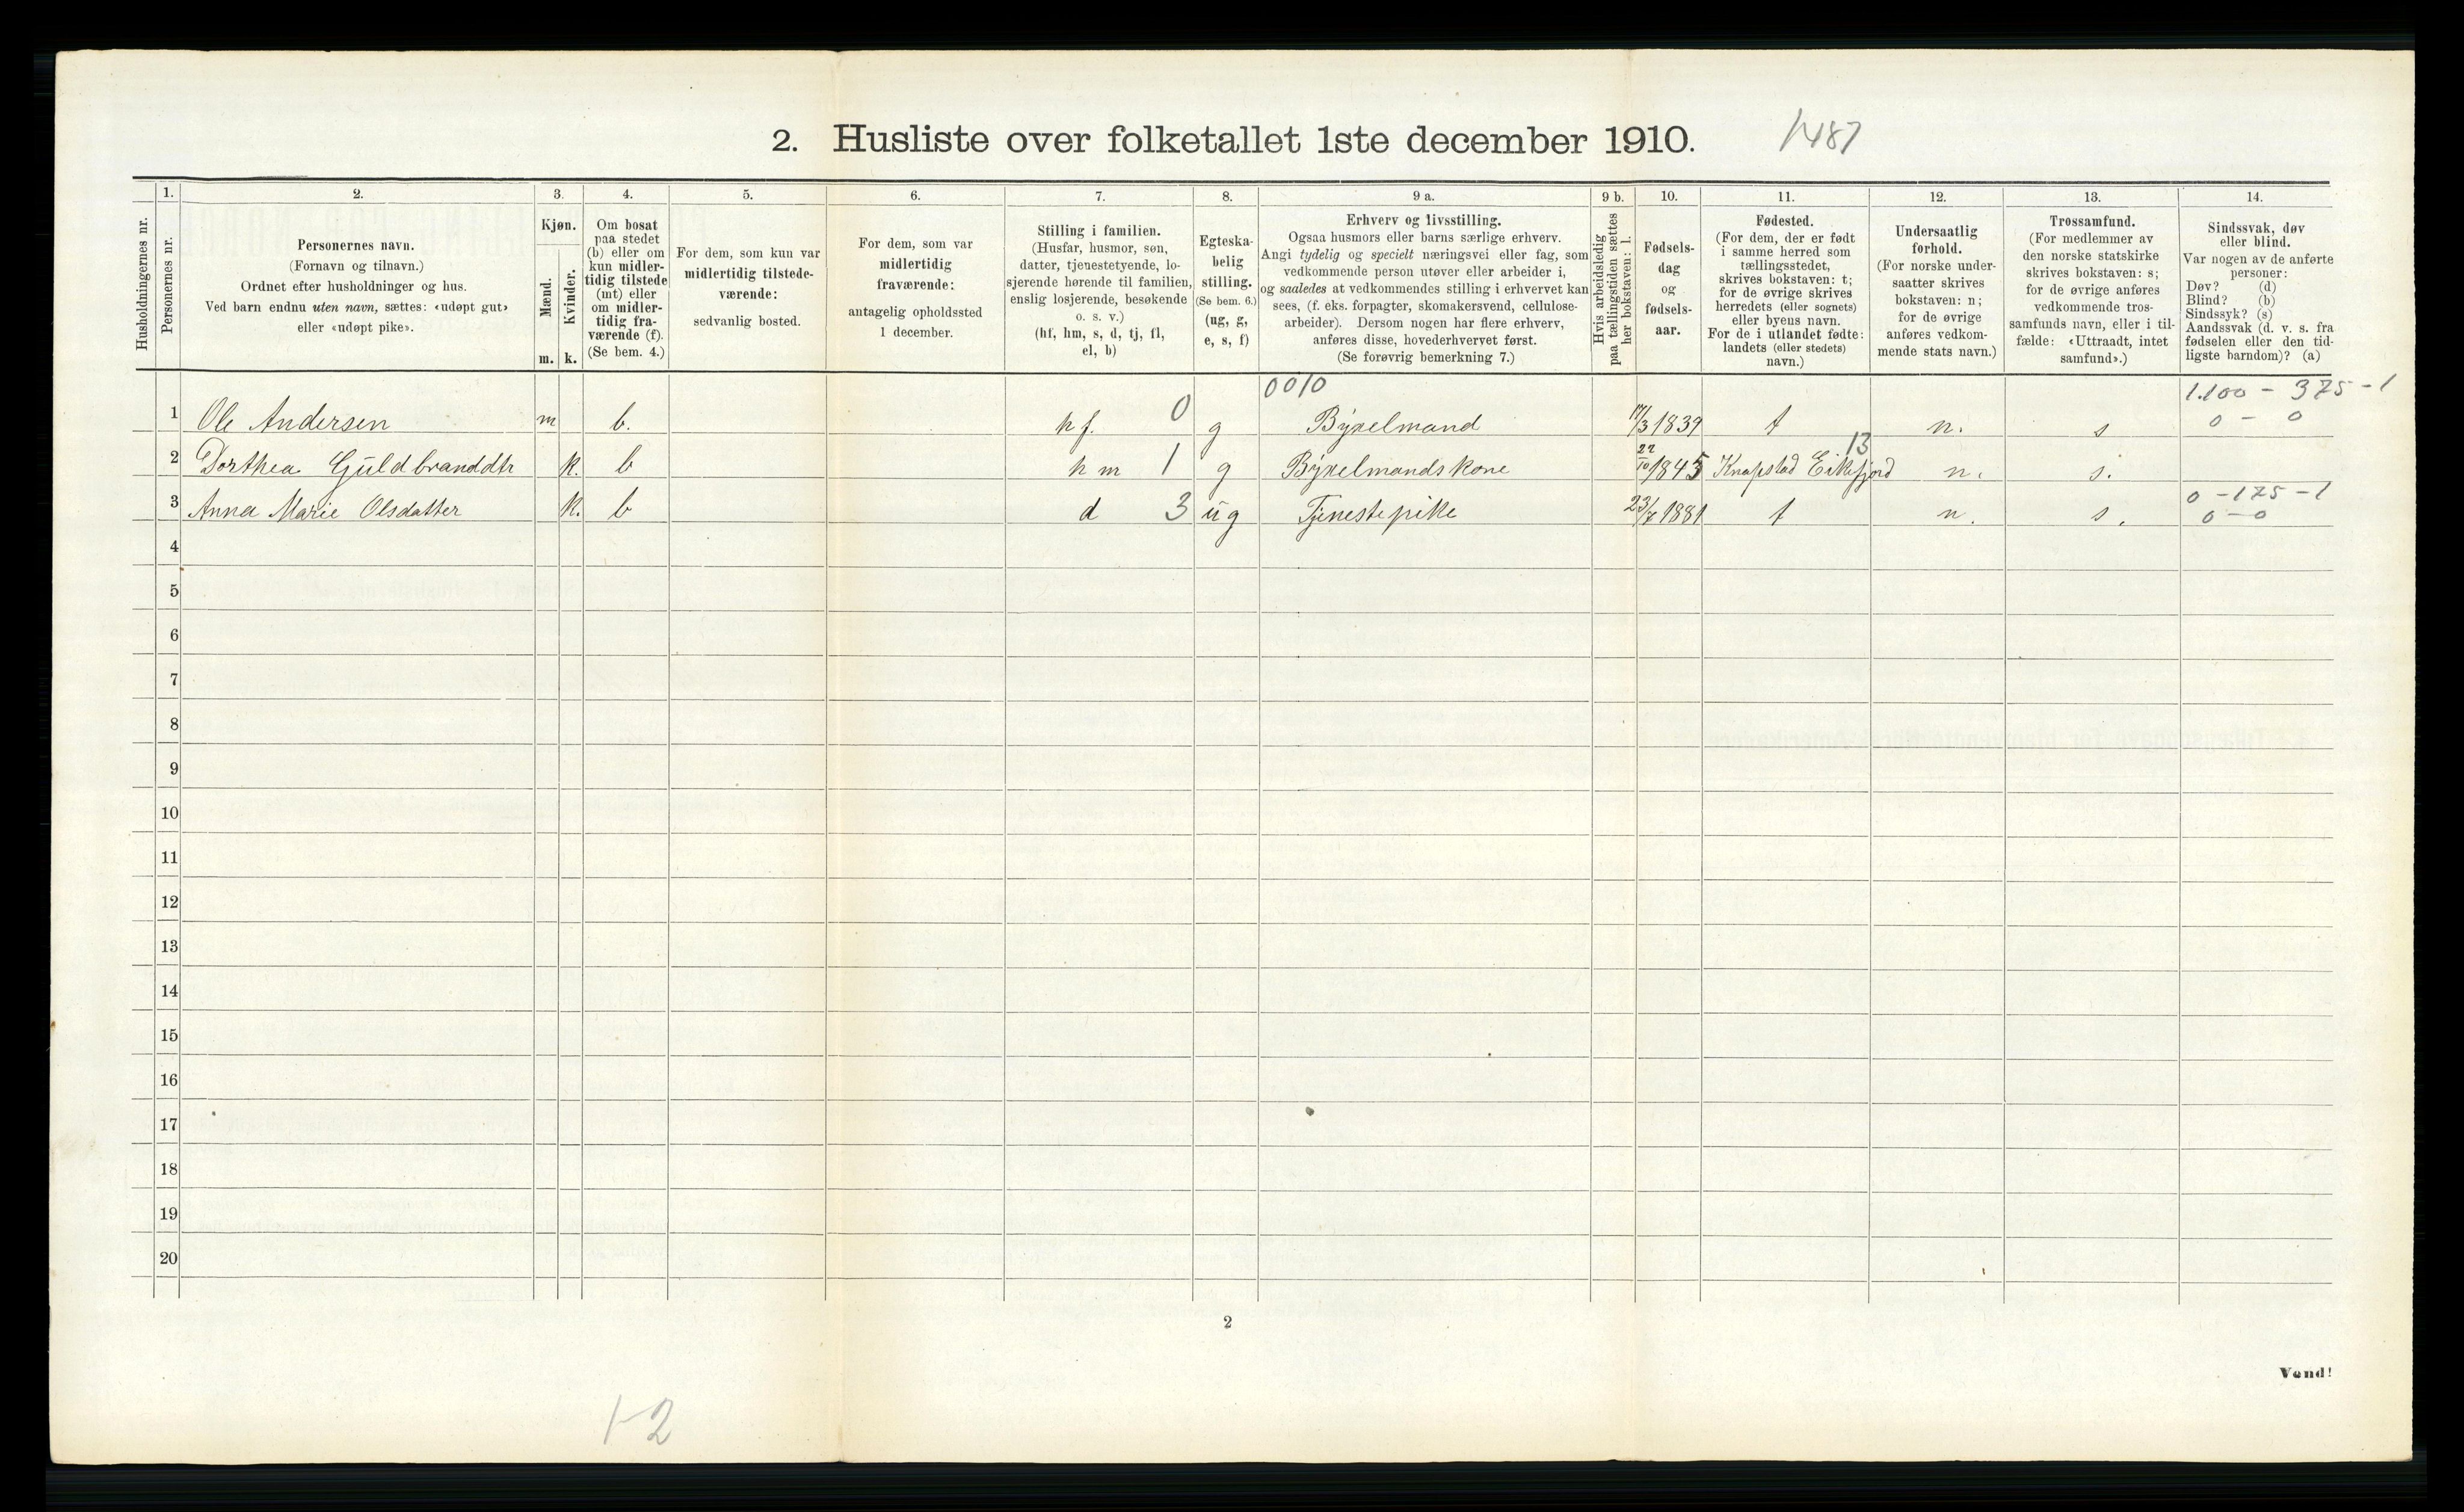 2. Husliste over folketallet 1ste december 1910. 1487
Husholdningernes nr.
1. Personernes nr.
2. Personernes navn. (Fornavn og tilnavn.) Ordnet efter husholdninger og hus. Ved barn endnu uten navn, sættes: «udøpt gut» eller «udøpt pike».
3. Kjøn. Mænd. m. Kvinder. k.
4. Om bosat paa stedet (b) eller om kun midlertidig tilstede (mt) eller om midlertidig fraværende (f). (Se bem. 4.)
5. For dem, som kun var midlertidig tilstedeværende: sedvanlig bosted.
6. For dem, som var midlertidig fraværende: antagelig opholdssted 1 december.
7. Stilling i familien. (Husfar, husmor, søn, datter, tjenestetyende, losjerende hørende til familien, enslig losjerende, besøkende o. s. v.) (hf, hm, s, d, tj, fl, el, b)
8. Egteskabelig stilling. (Se bem. 6.) (ug, g, e, s, f)
9 a. Erhverv og livsstilling. Ogsaa husmors eller barns særlige erhverv. Angi tydelig og specielt næringsvei eller fag, som vedkommende person utøver eller arbeider i, og saaledes at vedkommendes stilling i erhvervet kan sees, (f. eks. forpagter, skomakersvend, cellulosearbeider). Dersom nogen har flere erhverv, anføres disse, hovederhvervet først. (Se forøvrig bemerkning 7.)
9 b. Hvis arbeidsledig paa tællingstiden sættes her bokstaven: l.
10. Fødselsdag og fødselsaar.
11. Fødested. (For dem, der er født i samme herred som tællingsstedet, skrives bokstaven: t; for de øvrige skrives herredets (eller sognets) eller byens navn. For de i utlandet fødte: landets (eller stedets) navn.)
12. Undersaatlig forhold. (For norske undersaatter skrives bokstaven: n; for de øvrige anføres vedkommende stats navn.)
13. Trossamfund. (For medlemmer av den norske statskirke skrives bokstaven: s; for de øvrige anføres vedkommende trossamfunds navn, eller i tilfælde: «Uttraadt, intet samfund».)
14. Sindssvak, døv eller blind. Var nogen av de anførte personer: Døv? (d) Blind? (b) Sindssyk? (s) Aandssvak (d. v. s. fra fødselen eller den tidligste barndom)? (a)
0010 1.100 - 375 - 1
1 Ole Andersen m b. hf. 0 g Býxelmand 17/3 1839 t n. s 0 - 0
2 Dorthea Guldbranddtr k. b hm 1 g Býxelmandskone 22/10 1845 Knapstad Eikefjord 13 n. s.
3 Anna Marie Olsdatter k. b d 3 ug Tjenestepike 23/7 1881 t n. s. 0 - 175 - 1
0 - 0
4
5
6
7
8
9
10
11
12
13
14
15
16
17
18
19
20
2
Vend!
1-2